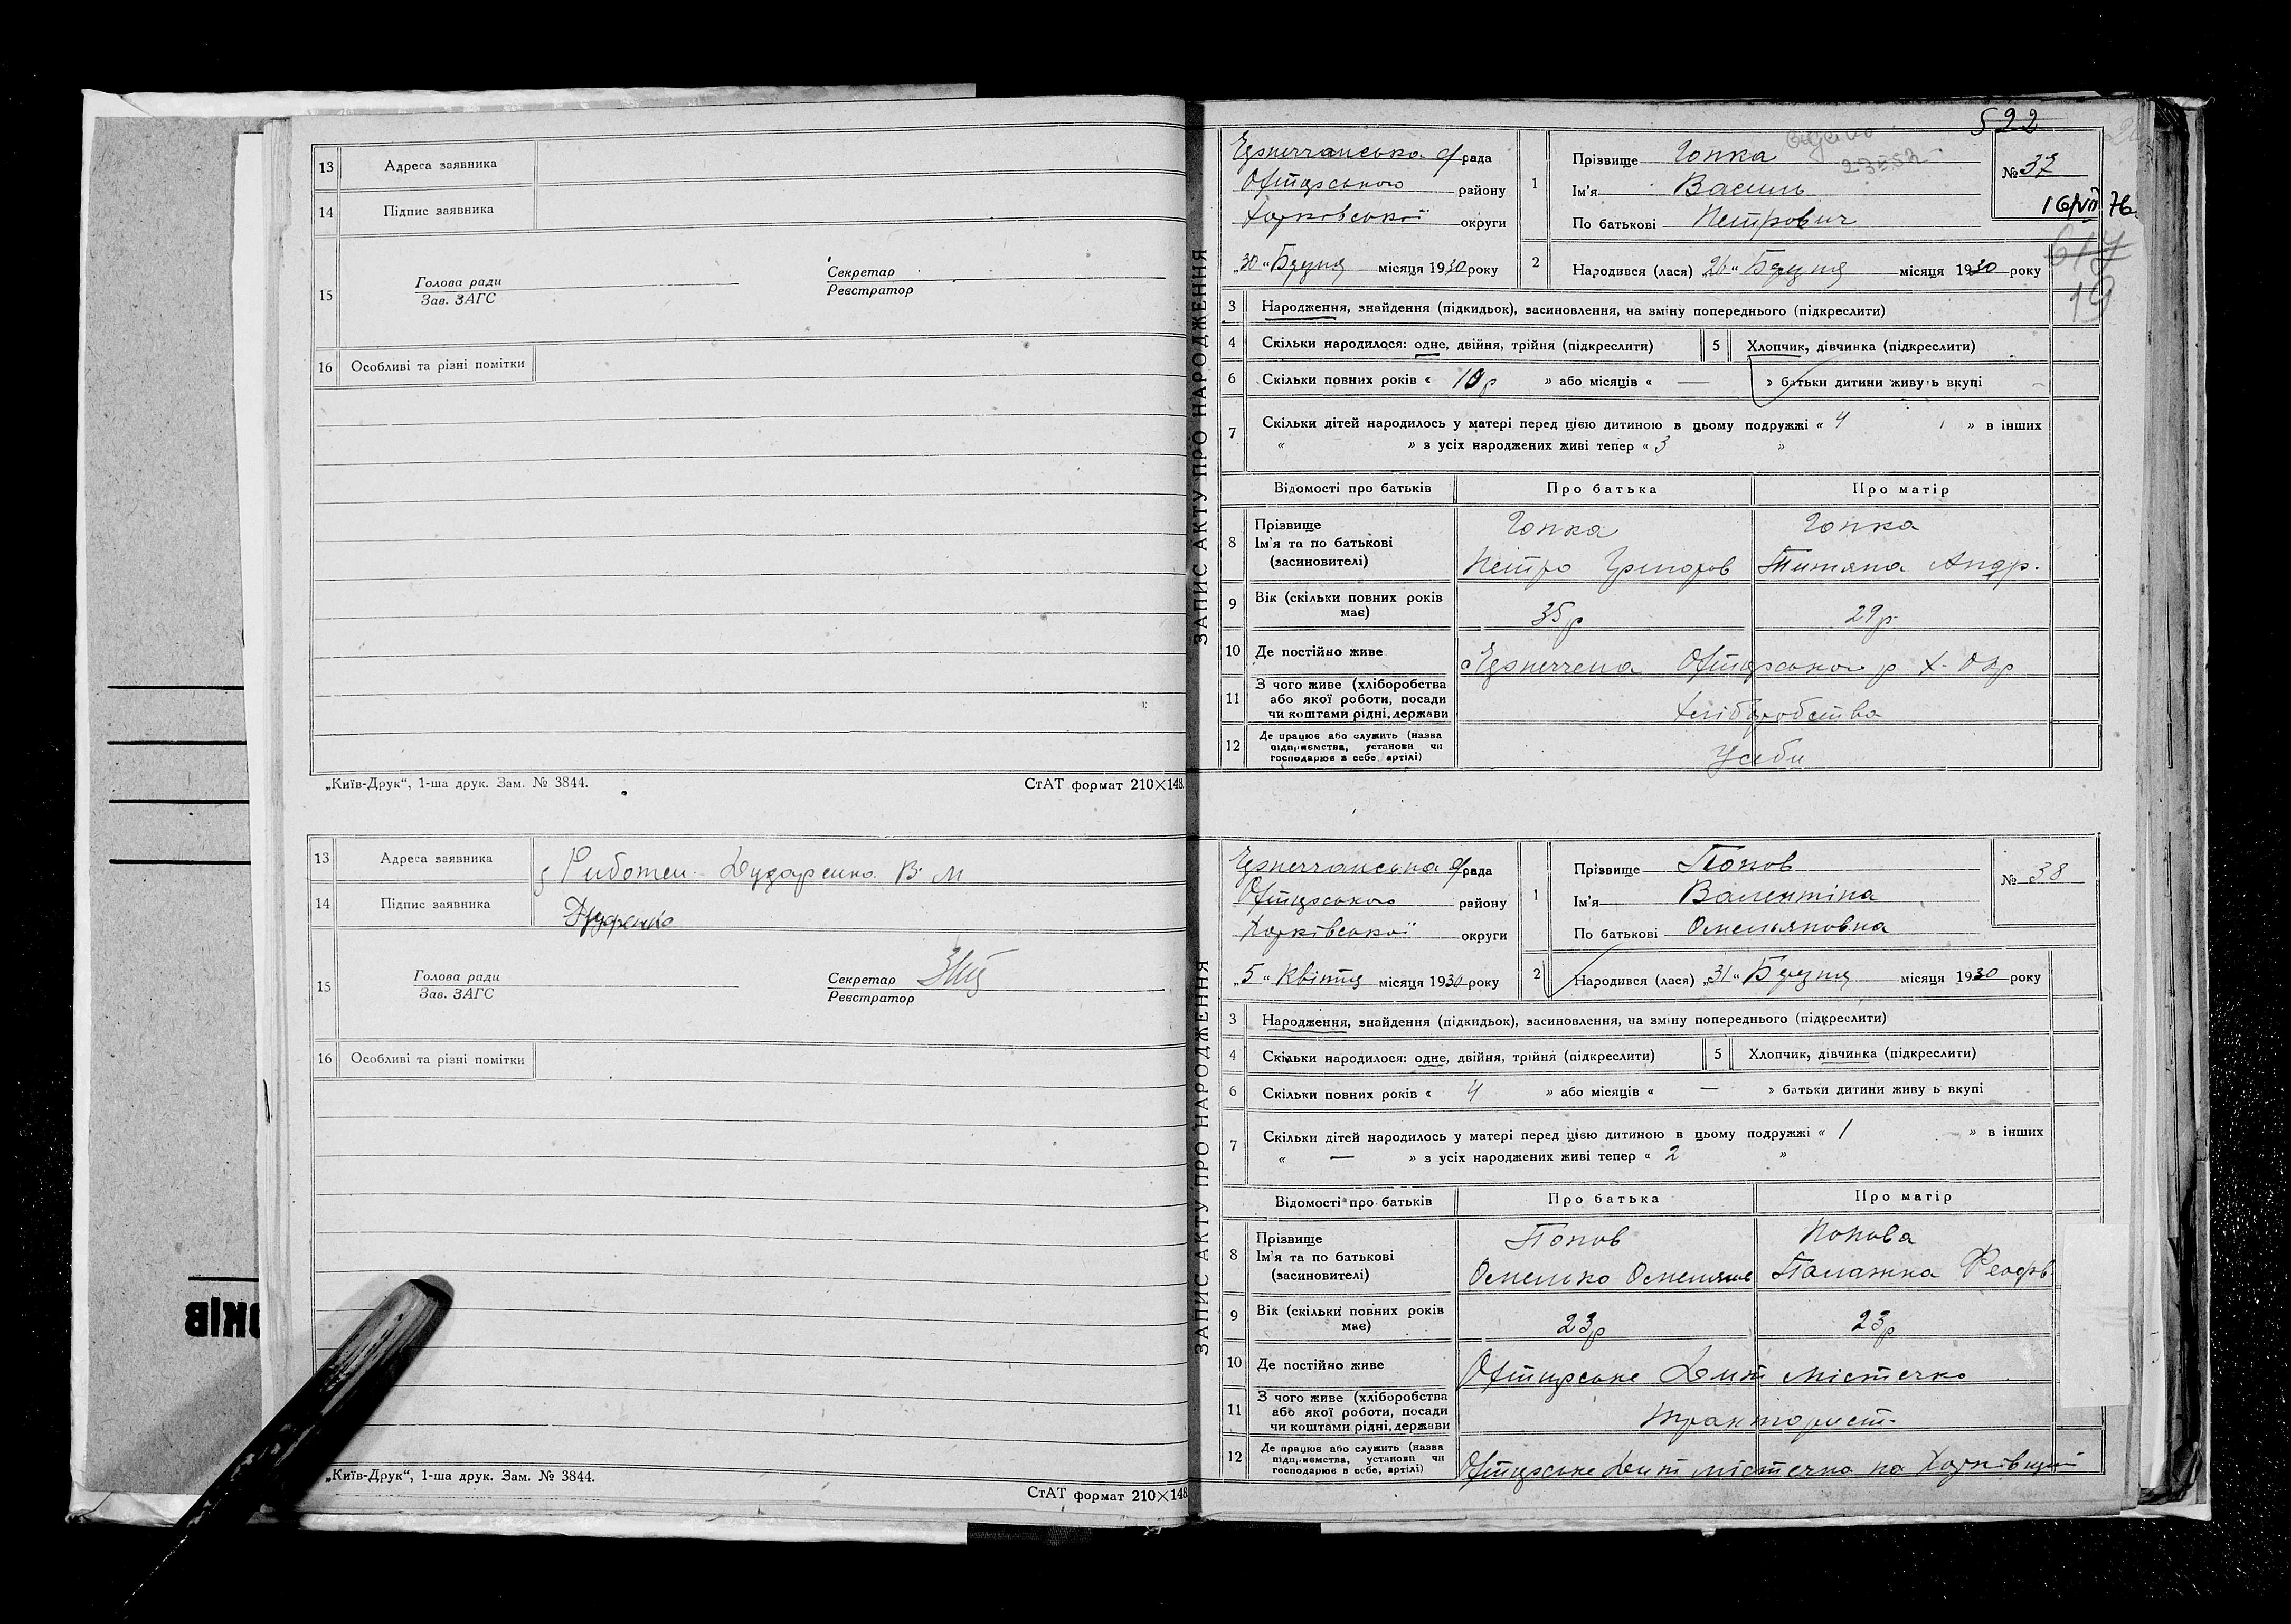 13 Адреса заявника
14 Підпис заявника
15 Голова ради
Зав. ЗАГС
Секретар
Реєстратор
16 Особливі та різні помітки
„Київ-Друк“, 1-ша друк. Зам. № 3844.
СтАТ формат 210×148.
13 Адреса заявника Дударенко В. М
14 Підпис заявника
15 Голова ради
Зав. ЗАГС
Секретар
Реєстратор
16 Особливі та різні помітки
„Київ-Друк“, 1-ша друк. Зам. № 3844.
СтАТ формат 210×148
ЗАПИС АКТУ ПРО НАРОДЖЕННЯ
522
рада
району
Харківської округи
„30“ Березня місяця 1930 року
1 Прізвище Гопка
Ім'я Василь
По батькові Петрович
№ 37
16/VII 76
617
19
2 Народився (лася) „26“ Березня місяця 1930 року
3 Народження, знайдення (підкидьок), засиновлення, на зміну попереднього (підкреслити)
4 Скільки народилося: одне, двійня, трійня (підкреслити) 5 Хлопчик, дівчинка (підкреслити)
6 Скільки повних років « 10 р » або місяців « — » батьки дитини живуть вкупі
7 Скільки дітей народилось у матері перед цією дитиною в цьому подружжі « 4 » в інших
« » з усіх народжених живі тепер « 3 »
Відомості про батьків Про батька Про матір
8 Прізвище
Ім'я та по батькові
(засновителі)
Гопка
Петро Григоров
Гопка
Титяна Андр.
9 Вік (скільки повних років має) 35 р 29 р.
10 Де постійно живе
11 З чого живе (хліборобства
або якої роботи, посади
чи коштами рідні, держави
хліборобства
12 Де працює або служить (назва
підприємства, установи чи
господарює в себе, артілі)
У себи
ЗАПИС АКТУ ПРО НАРОДЖЕННЯ
рада
району
Харківської округи
„5“ Квітня місяця 1930 року
1 Прізвище Попов
Ім'я Валентіна
По батькові Омельяновна
№ 38
2 Народився (лася) „31“ Березня місяця 1930 року
3 Народження, знайдення (підкидьок), засиновлення, на зміну попереднього (підкреслити)
4 Скільки народилося: одне, двійня, трійня (підкреслити) 5 Хлопчик, дівчинка (підкреслити)
6 Скільки повних років « 4 » або місяців « — » батьки дитини живу ь вкупі
7 Скільки дітей народилось у матері перед цією дитиною в цьому подружжі « 1 — » в інших
« — » з усіх народжених живі тепер « 2 »
Відомості про батьків Про батька Про матір
8 Прізвище
Ім'я та по батькові
(засиновителі)
Попов
Омелько Омельянов
Попова
Палажка Феодрв.
9 Вік (скільки повних років має) 23 р 23 р
10 Де постійно живе містечко
11 З чого живе (хліборобства
або якої роботи, посади
чи коштами рідні, держави
тракторист
12 Де працює або служить (назва
підприємства, установи чи
господарює в себе, артілі)
містечка на Харківщині